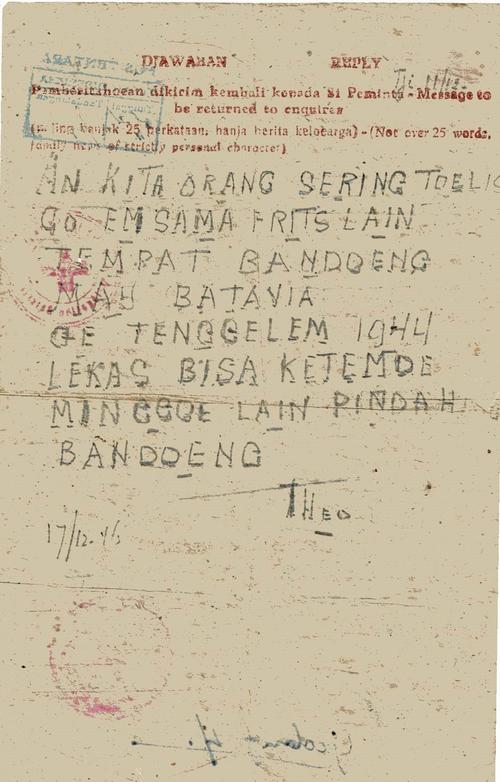 DJAWABAN REPLY
Pemberitahoean dikirim kembali kepada Si Peminta - Message to
be returned to enquirer
(paling banjak 25 perkataan, hanja berita keloearga) - (Not over 25 words,
family news of strictly personal character)
AN KITA ORANG SERING TOELIS
GO EM SAMA FRITS LAIN
TEMPAT BANDOENG
MAY BATAVIA
GE TENGGELEM 1944
LEKAS BISA KETEMOE
MINGGOE LAIN PINDAH
BANDOENG
THEO
17/12-45